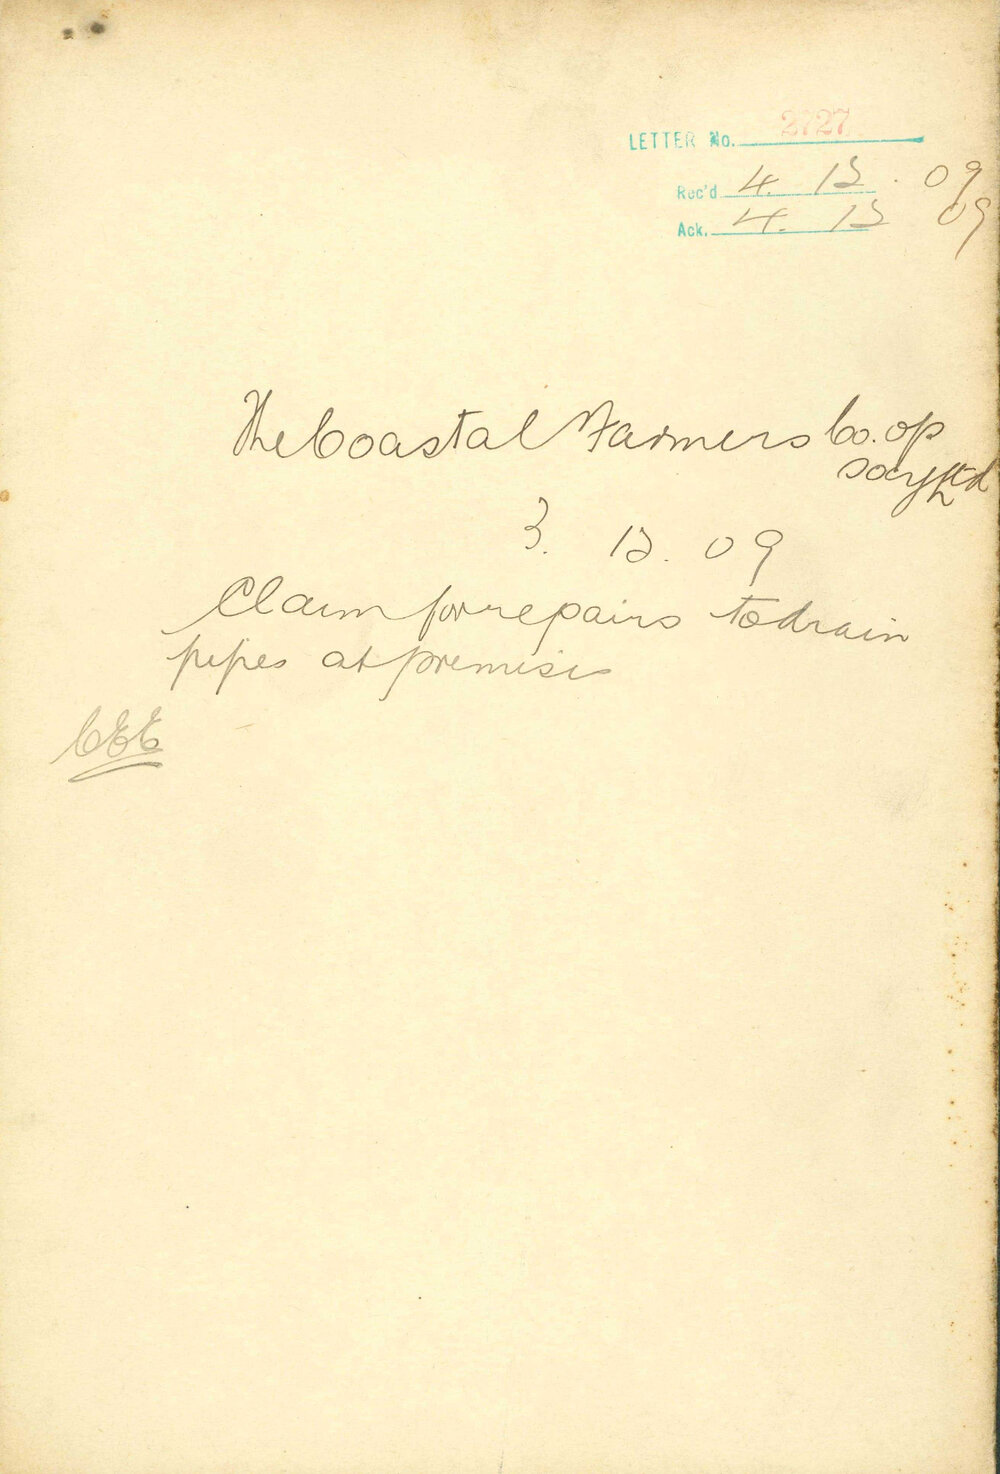 LETTER No. 2727
Rec'd 4. 12. 09
Ack. 4. 12 09
The Coastal Farmers Co. op
Socy Ltd
3. 12. 09
Claim for repairs to drain
pipes at premises